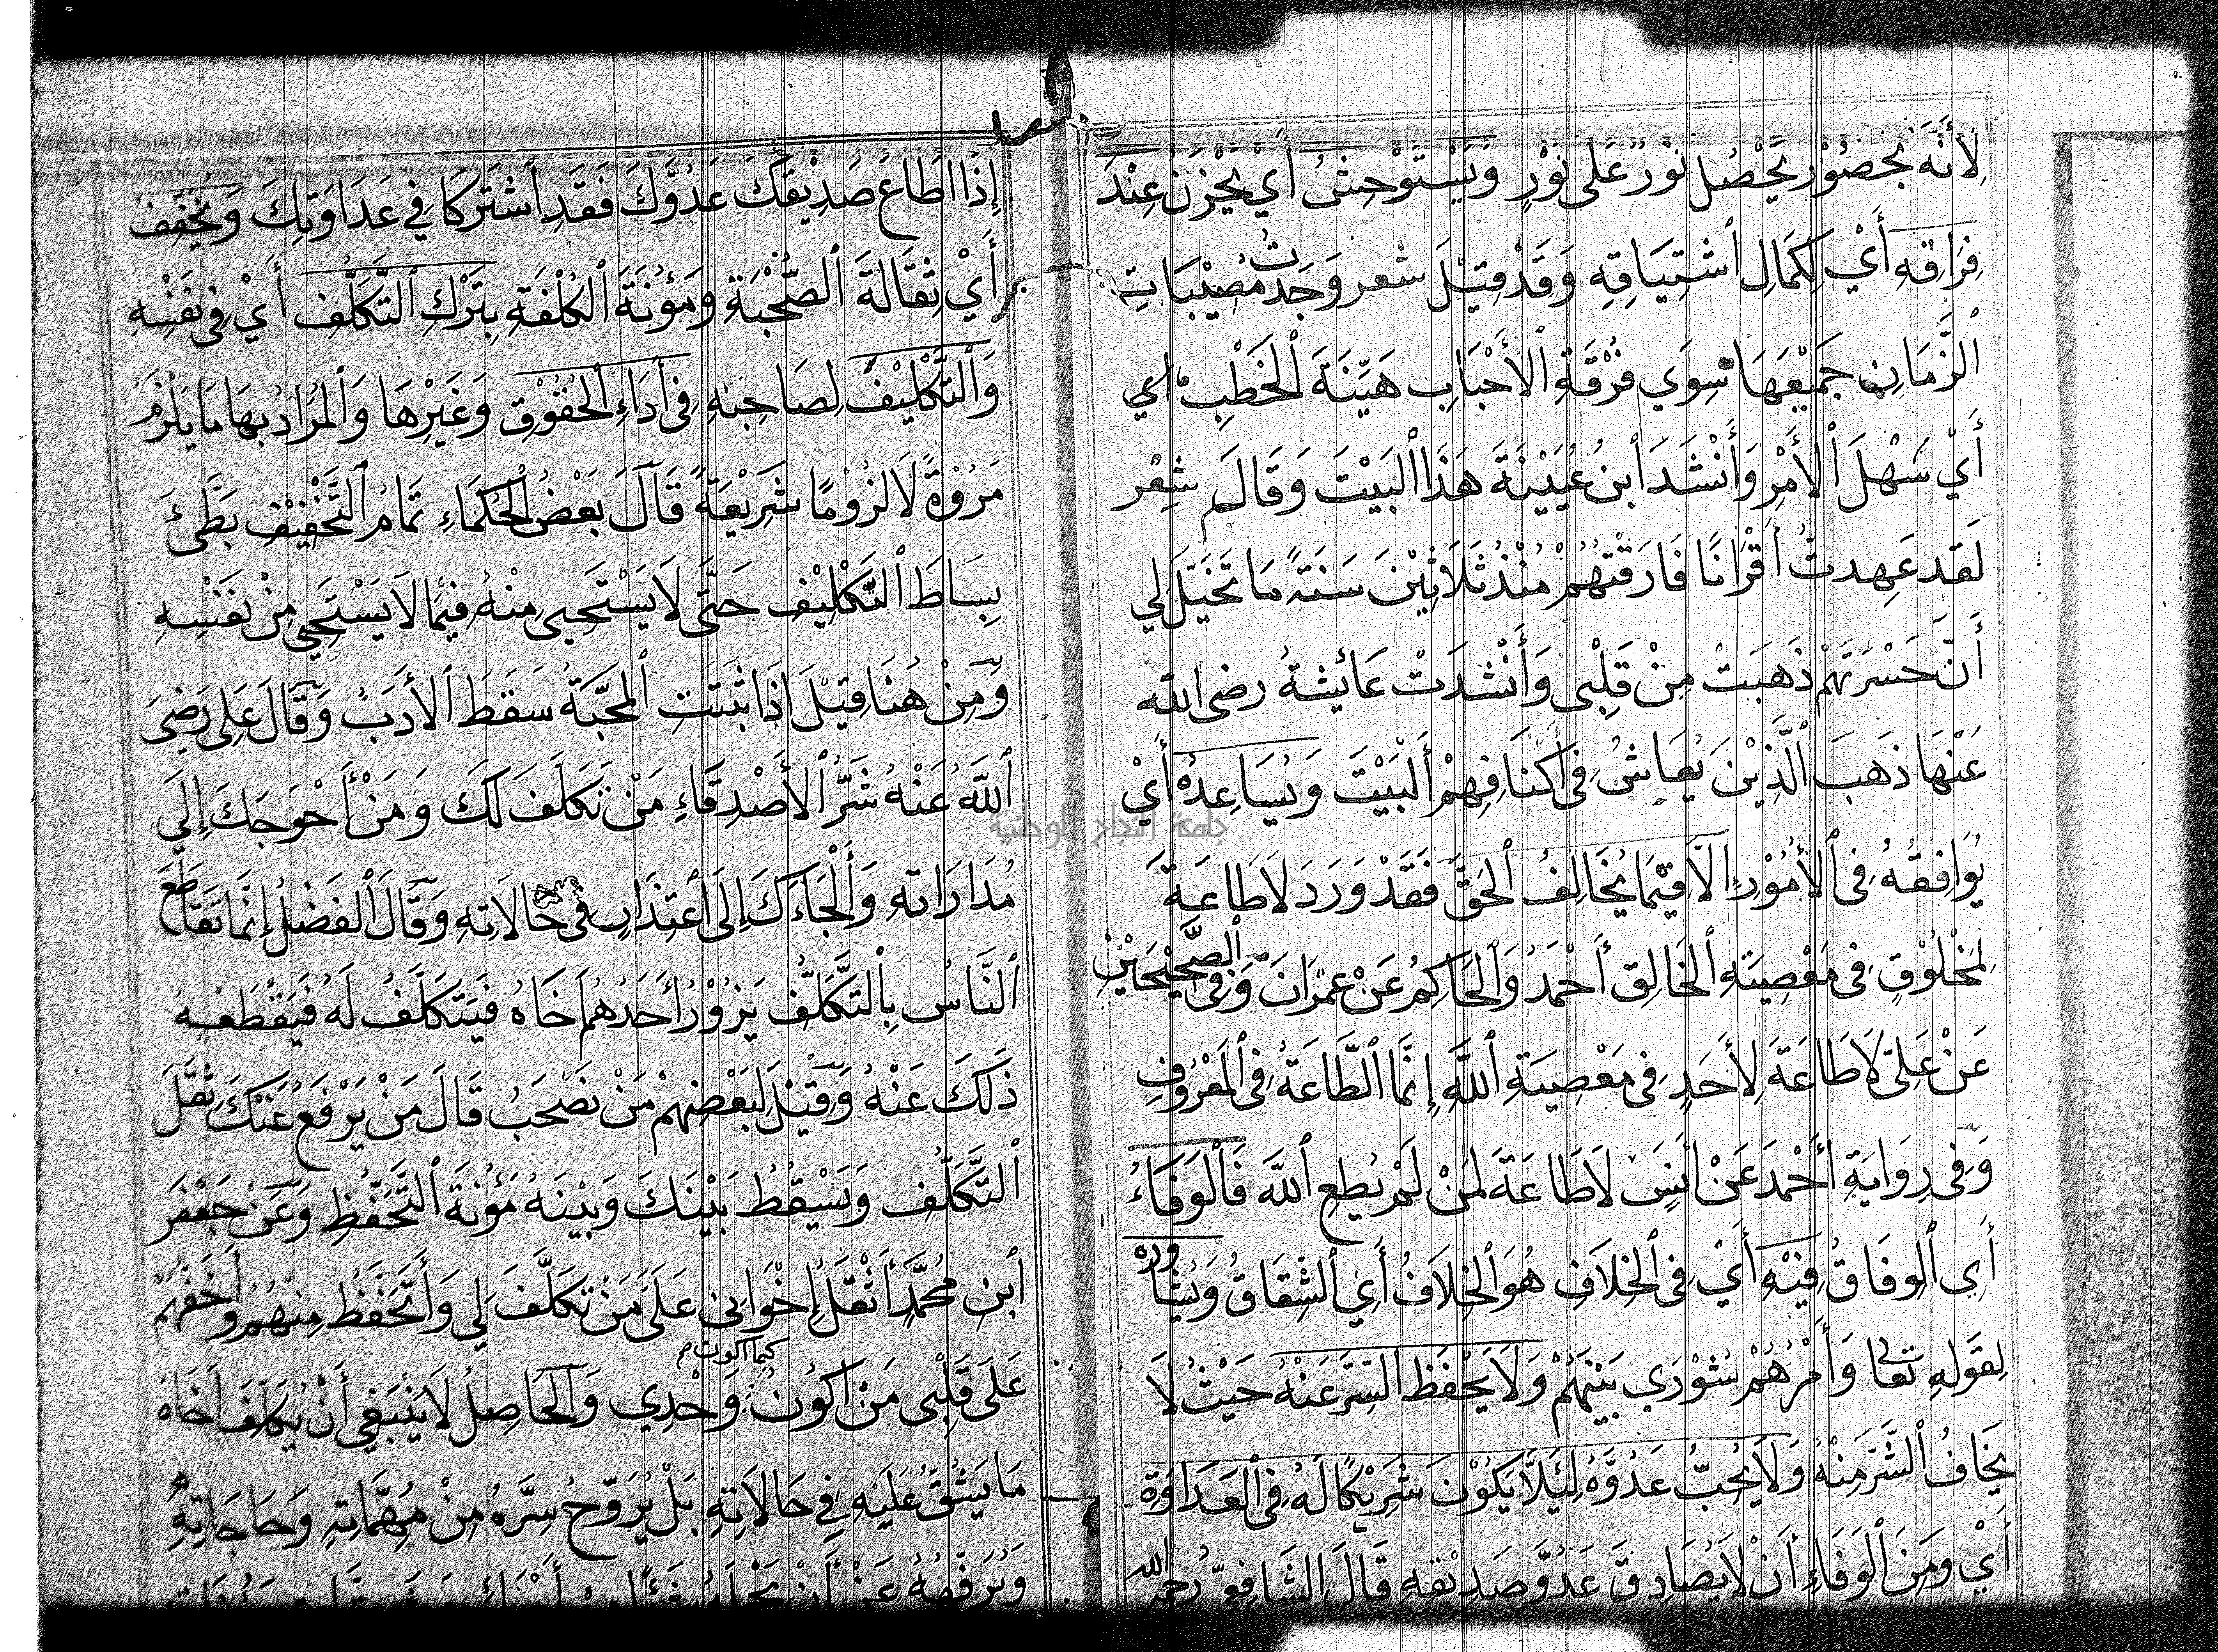 لِأَنَّهُ بِحُضُوْرِ يَحْصُلُ نُوْرٌ عَلَى نُوْرٍ وَيَسْتَوْحِشُ أَيْ يَحْزَنُ عِنْدَ
فِرَاقِهِ أَيْ لِكَمَالِ ٱشْتِيَاقِهِ وَقَدْ قِيْلَ شعر وَجَدْتُ مُصِيْبَاتِ
ٱلزَّمَانِ جَمِيْعَهَا سِوَي فُرْقَةِ ٱلأَحْبَابِ هَيِّنَةَ ٱلْخَطْبِ اي
أَيْ سَهْلَ ٱلأَمْرِ وَأَنْشَدَ ٱبنُ عُيَيْنَةَ هَذَا البَيْتَ وَقَالَ شِعْر
لَقَد عَهِدتُ أَقْرَانًا فَارَقْتُهُمْ مُنْذُ ثَلَاثِيْنَ سَنَةً مَا تَخَيَّلَ لِي
أَنَّ حَسْرَتَهُمْ ذَهَبَتْ مِنْ قَلْبِى وَأَنْشَدَتْ عَائِشَةُ رضى الله
عَنْهَا ذَهَبَ ٱلَّذِيْنَ يُعَاشُ فِى أَكْنَافِهِمْ أَلْبَيْتَ وَيُسَاعِدُهُ أَيْ
يُوَافِقُهُ فِى ٱلأُمُوْرِ إِلَّا فِيْمَا يُخَالِفُ ٱلحَقَّ فَقَدْ وَرَدَ لَا طَاعَةَ
لِمَخْلُوْقٍ فِى مَعْصِيَةِ ٱلخَالِقِ أَحْمَدُ وَٱلحَاكِمُ عَنْ عِمْرَانَ وَفِى ٱلصَّحِيْحَيْنِ
عَنْ عَلِىّ لَا طَاعَةَ لِأَحَدٍ فِى مَعْصِيَةِ ٱللَّهِ إِنَّمَا ٱلطَّاعَةُ فِى ٱلمَعْرُوفِ
وَفِى رِوَايَةِ أَحْمَدَ عَنْ أَنَسٍ لَا طَاعَةَ لِمَنْ لَمْ يُطِعِ ٱللَّهَ فَالْوَفَاءُ
أَيِ ٱلوِفَاقُ فِيْهِ أَيْ فِى ٱلخِلَافِ هُوَ ٱلخِلَافُ أَيِ ٱلشِّقَاقُ وَيُشَاوِرُهُ
لِقَوْلِهِ تعالى وَأَمْرُهُمْ شُوْرَي بَيْنَهُمْ وَلَا يَحْفَظُ السِّرَّ عَنْهُ حَيْثُ لَا
يَخَافُ ٱلشَّرَّ مِنْهُ وَلَا يُحِبُّ عَدُوَّهُ لِئَلَّا يَكُوْنَ شَرِيْكًا لَهُ فِى ٱلْعَدَاوَةِ
أَيْ وَمِنَ ٱلْوَفَاءِ أَنْ لَا يُصَادِقَ عَدُوَّ صَدِيْقِهِ قَالَ الشَّافِعِيّ رُحِمَه الله
إِذَا اطَاعَ صَدِيْقُكَ عَدُوَّكَ فَقَدِ ٱشْتَرَكَا فِي عَدَاوَتِكَ وَيُخَفِّفُ
أَيْ ثِقَالَةَ ٱلصُّحْبَةِ وَمَؤُنَةَ ٱلكُلْفَةِ بِتَرْكِ ٱلتَّكَلُّفِ أَيْ فِى نَفْسِهِ
وَٱلتَّكْلِيْفِ لِصَاحِبِهِ فِى أَدَاءِ ٱلحُقُوْقِ وَغَيْرِهَا وَالْمُرَادُ بِهَا مَا يَلْزَمُ
مَرُوْةً لَا لُزُوْمًا شَرِيْعَةً قَالَ بَعْضُ ٱلحُكَمَاءِ تَمَامُ ٱلتَّخْفِيْفِ بَطْيُ
بِسَاطَ ٱلتَّكْلِيْفِ حَتَّى لَا يَسْتَحِيى مِنْهُ فِيْمَا لَا يَسْتَحِيي مِنْ نَفْسِهِ
وَمِنْ هُنَا قِيْلَ إِذَا ثَبَتَتِ ٱلمَحَبَّةُ سَقَطَ ٱلأَدَبُ وَقَالَ عَلِى رَضِىَ
ٱللَّهُ عَنْهُ شَرُّ ٱلأَصْدِقَاءِ مَنْ تَكَلَّفَ لَكَ وَمَنْ أَحْوَجَكَ إِلَى
مُدَارَاتِهِ وَأَلْجَاءَكَ إِلَى ٱعْتِذَارٍ فِى حَالَاتِهِ وَقَالَ ٱلفَضْلُ إِنَّمَا تَقَاطَعَ
ٱلنَّاسُ بِٱلتَّكَلُّفِ يَزُوْرُ أَحَدُهُمْ أَخَاهُ فَيَتَكَلَّفُ لَهُ فَيَقْطَعُهُ
ذَلكَ عَنْهُ وَقِيْلَ لِبَعْضِهِمْ مَنْ نَصْحَبُ قَالَ مَنْ يَرْفَعُ عَنْكَ ثِقَلَ
ٱلتَّكَلُّفِ وَيَسْقُطُ بَيْنَكَ وَبَيْنَهُ مَؤُنَةَ ٱلتَّحَفُّظِ وَعَنْ جَعْفَرَ
ٱبنِ مُحَمَّدٍ أَثْقَلُ إِخْوَانِى عَلَىَّ مَنْ تَكَلَّفَ لِي وَأَتَحَفَّظُ مِنْهُمْ وَأَخَفُّهُمْ
عَلَى قَلْبِى مَنْ أَكُوْنُ كما اكون م وَحْدِي وَٱلحَاصِلُ لَا يَنْبَغِي أَنْ يُكَلِّفَ أَخَاهُ
مَا يَشُقُّ عَلَيْهِ فِي حَالَاتِهِ بَلْ يُرَوِّحُ سِرَّهُ مِنْ مُهِمَّاتِهِ وَحَاجَاتِهِ
وَيُرَفِّهُهُ عَنْ أَنْ
جامعة النجاح الوطنية